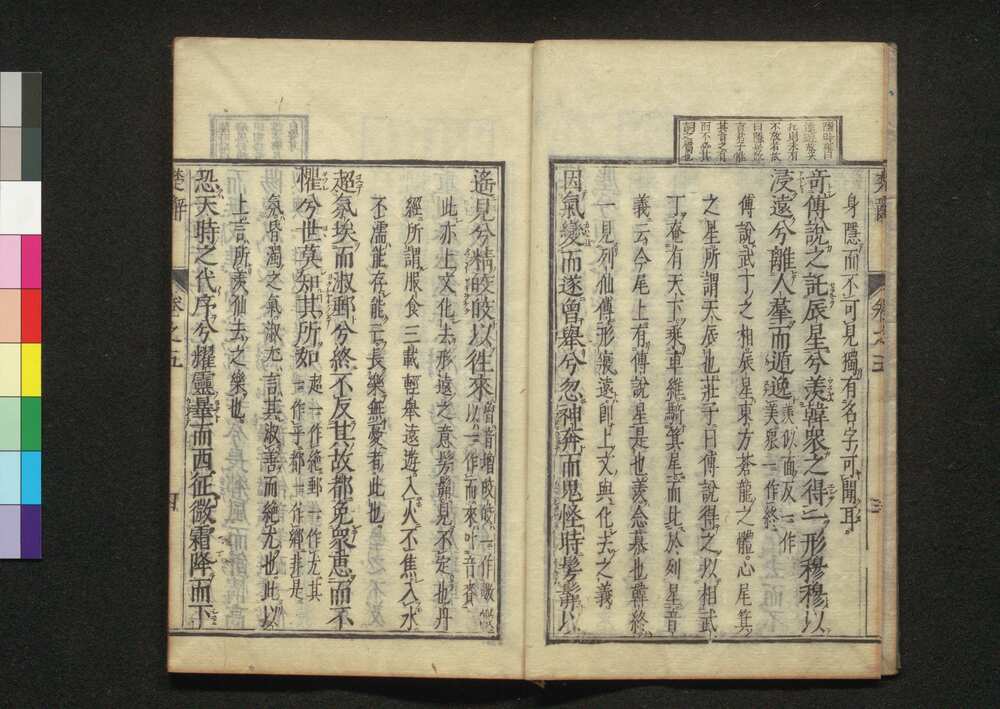 身隱而不可見獨有名字可聞耳
奇傅說之託辰星兮羨韓衆之得一形穆穆以
浸遠兮離人羣而遁逸羨似面反一作美衆一作終
傅說武丁之相辰星東方蒼龍之體心尾箕
之星所謂大辰也莊子曰傅說得之以相武
丁奄有天下乘車維騎箕星而比於列星音
義云今尾上有傅說星是也羨念慕也韓終
一見列仙傳形寖遠卽上文與化去之義
因氣變而遂曾舉兮忽神奔而鬼怪時髣髴以
遙見兮精皎皎以往來曾音增皎皎一作皦皦以一作而來叶音釐
此亦上文化去形遠之意髣髴見不定也丹
經所謂服食三載輕舉遠遊入火不焦入水
不濡能存能亡長樂無憂者此也
超氛埃而淑郵兮終不反其故都免衆患而不
懼兮世莫知其所如超一作絶郵一作尤其一作乎都一作鄉非是
氛昏濁之氣淑尤言其淑善而絶尤也此以
上言所羨仙去之樂也
恐天時之代序兮耀靈曄而西征微霜降而下
楚辭
卷之五
四